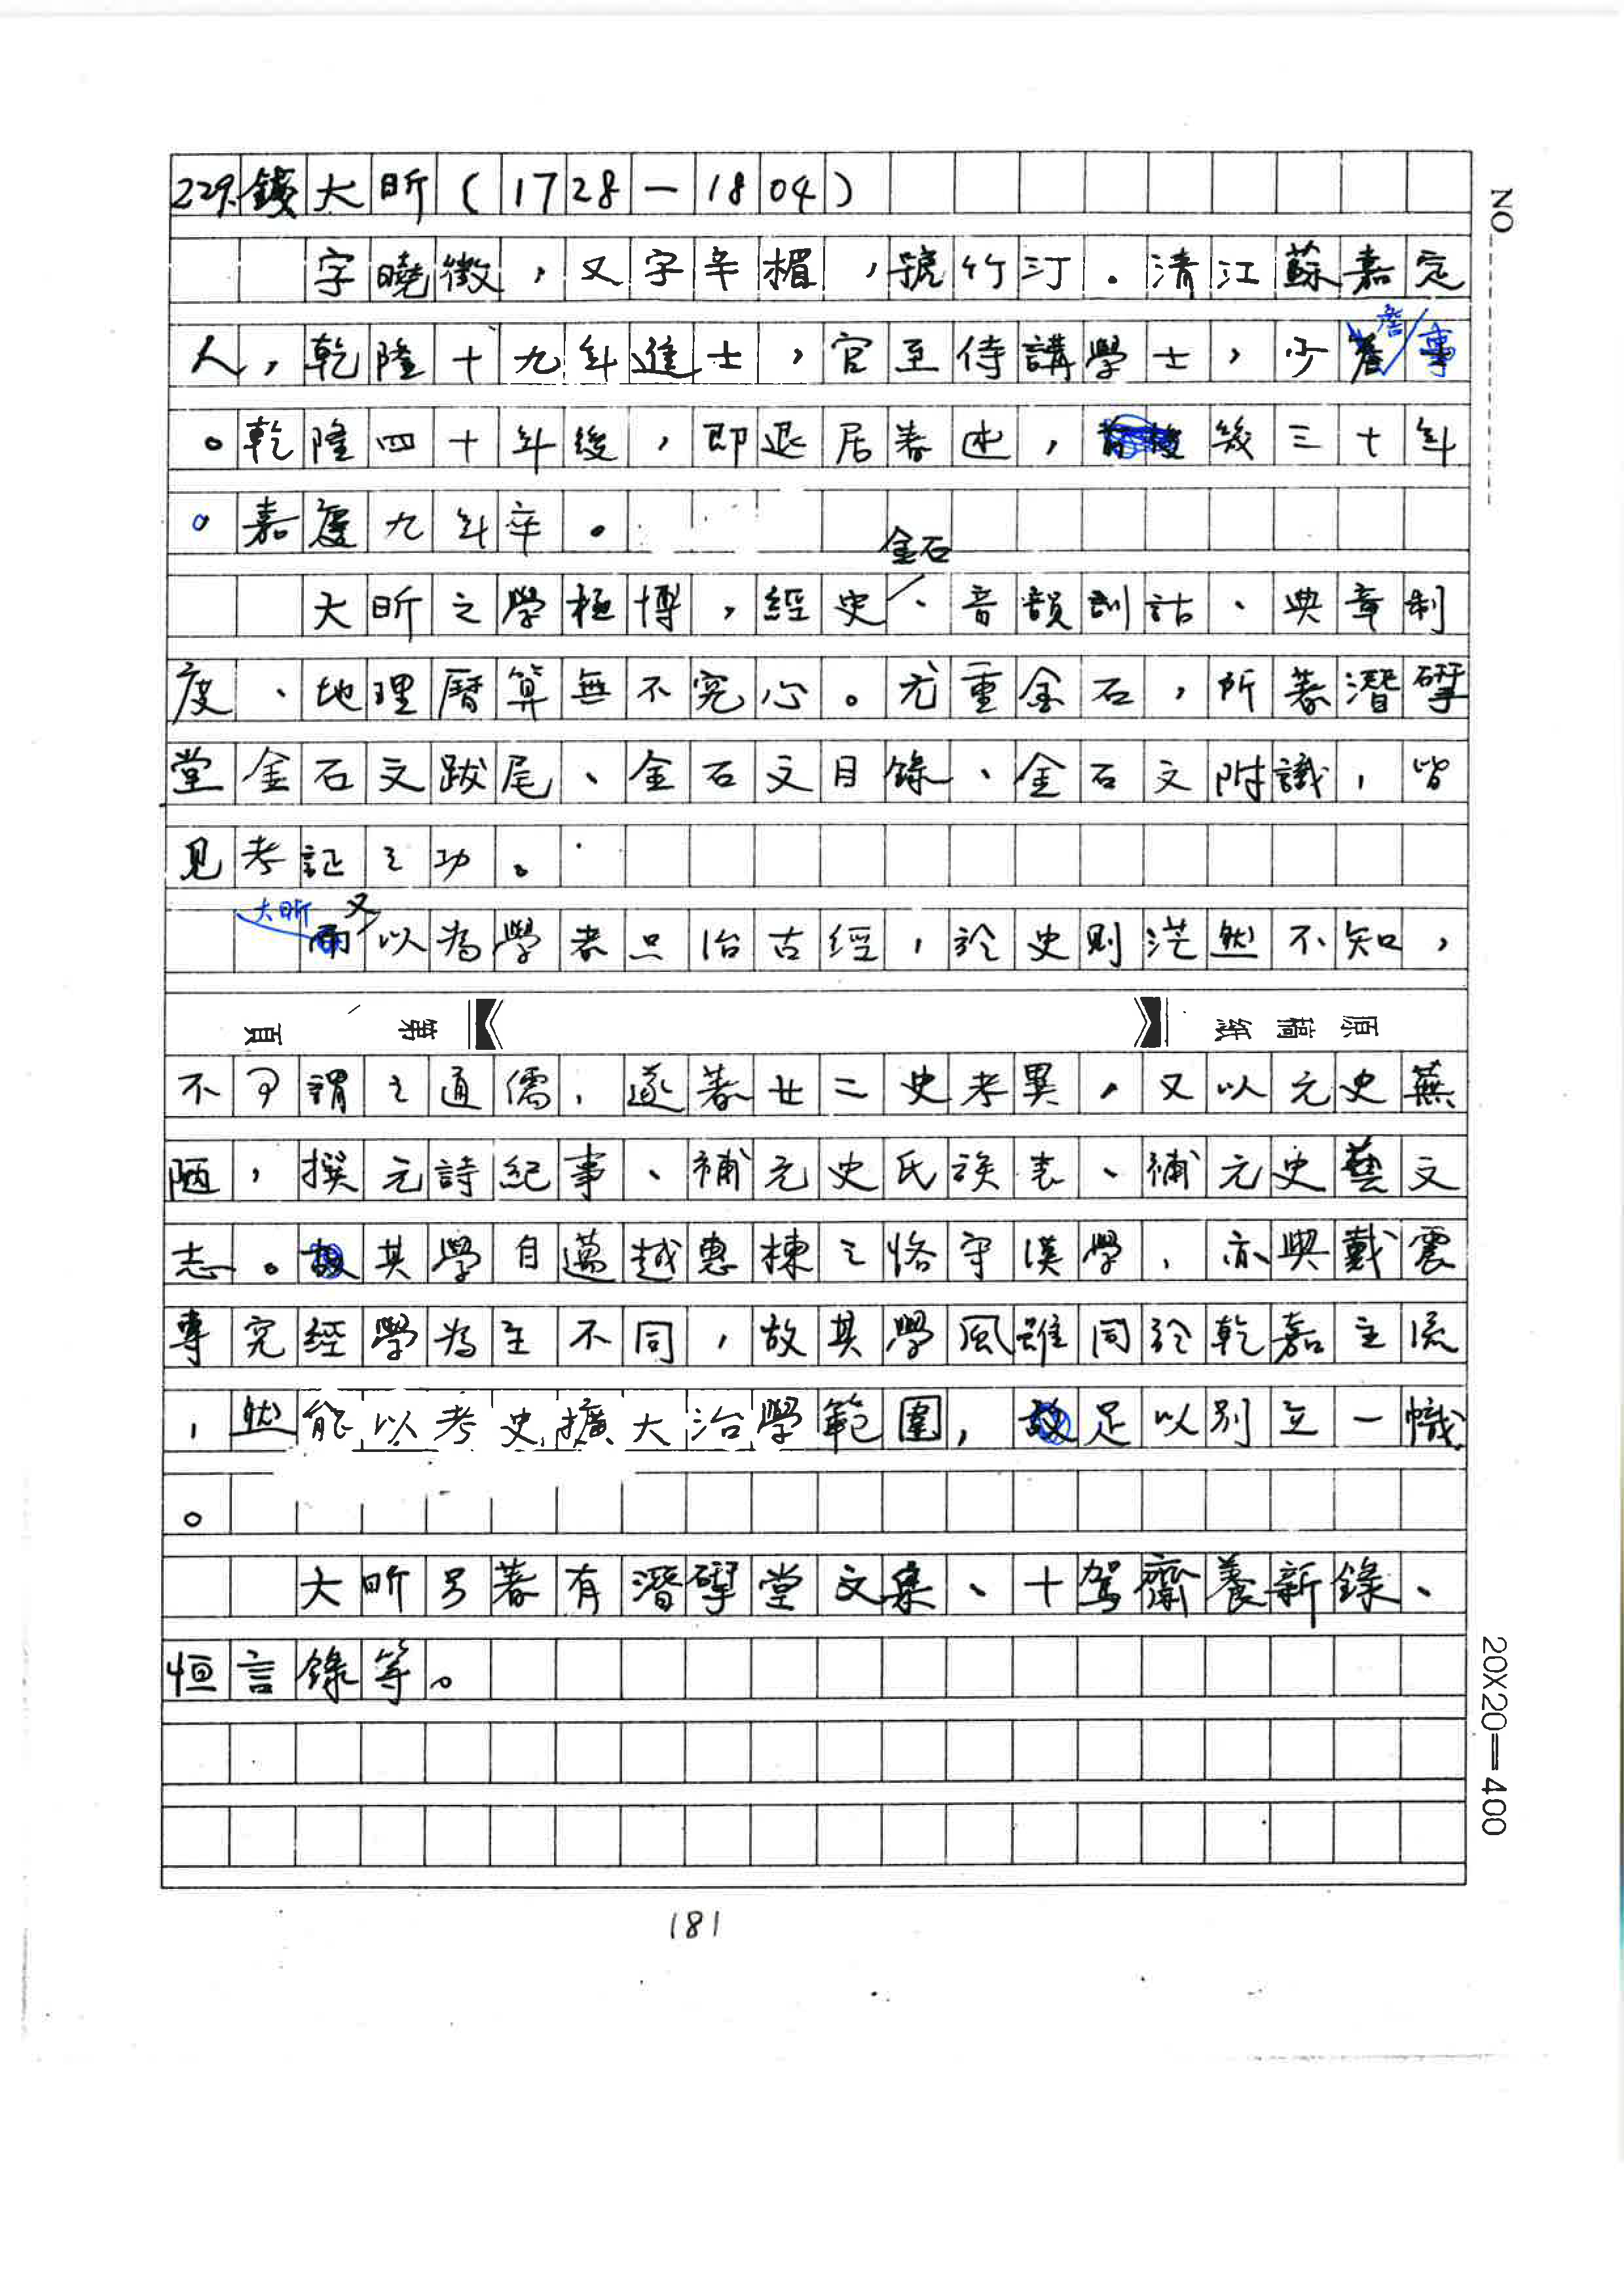 229.錢大昕(1728—1804)
字曉徵,又字辛楣,號竹汀.清江蘇嘉定
人,乾隆十九年進士,官至侍講學士,少詹事
。乾隆四十年後,即退居著述,幾三十年
。嘉慶九年卒。
大昕之學極博,經史金石、音韻訓詁、典章制
度、地理曆算無不究心。尤重金石,所著潛硏
堂金石文跋尾、金石文目錄、金石文附識,皆
見考証之功。
大昕又以為學者只治古經,於史則茫然不知,
原稿紙 第 頁
不可謂之通儒,遂著廿二史考異,又以元史蕪
陋,撰元詩紀事、補元史氏族表、補元史藝文
志。其學自邁越惠棟之恪守漢學,亦與戴震
專究經學為主不同,故其學風雖同於乾嘉主流
,然能以考史擴大治學範圍,足以別立一幟
。
大昕另著有潛揅堂文集、十駕齋養新錄、
恒言錄等。
NO
20X20=400
181